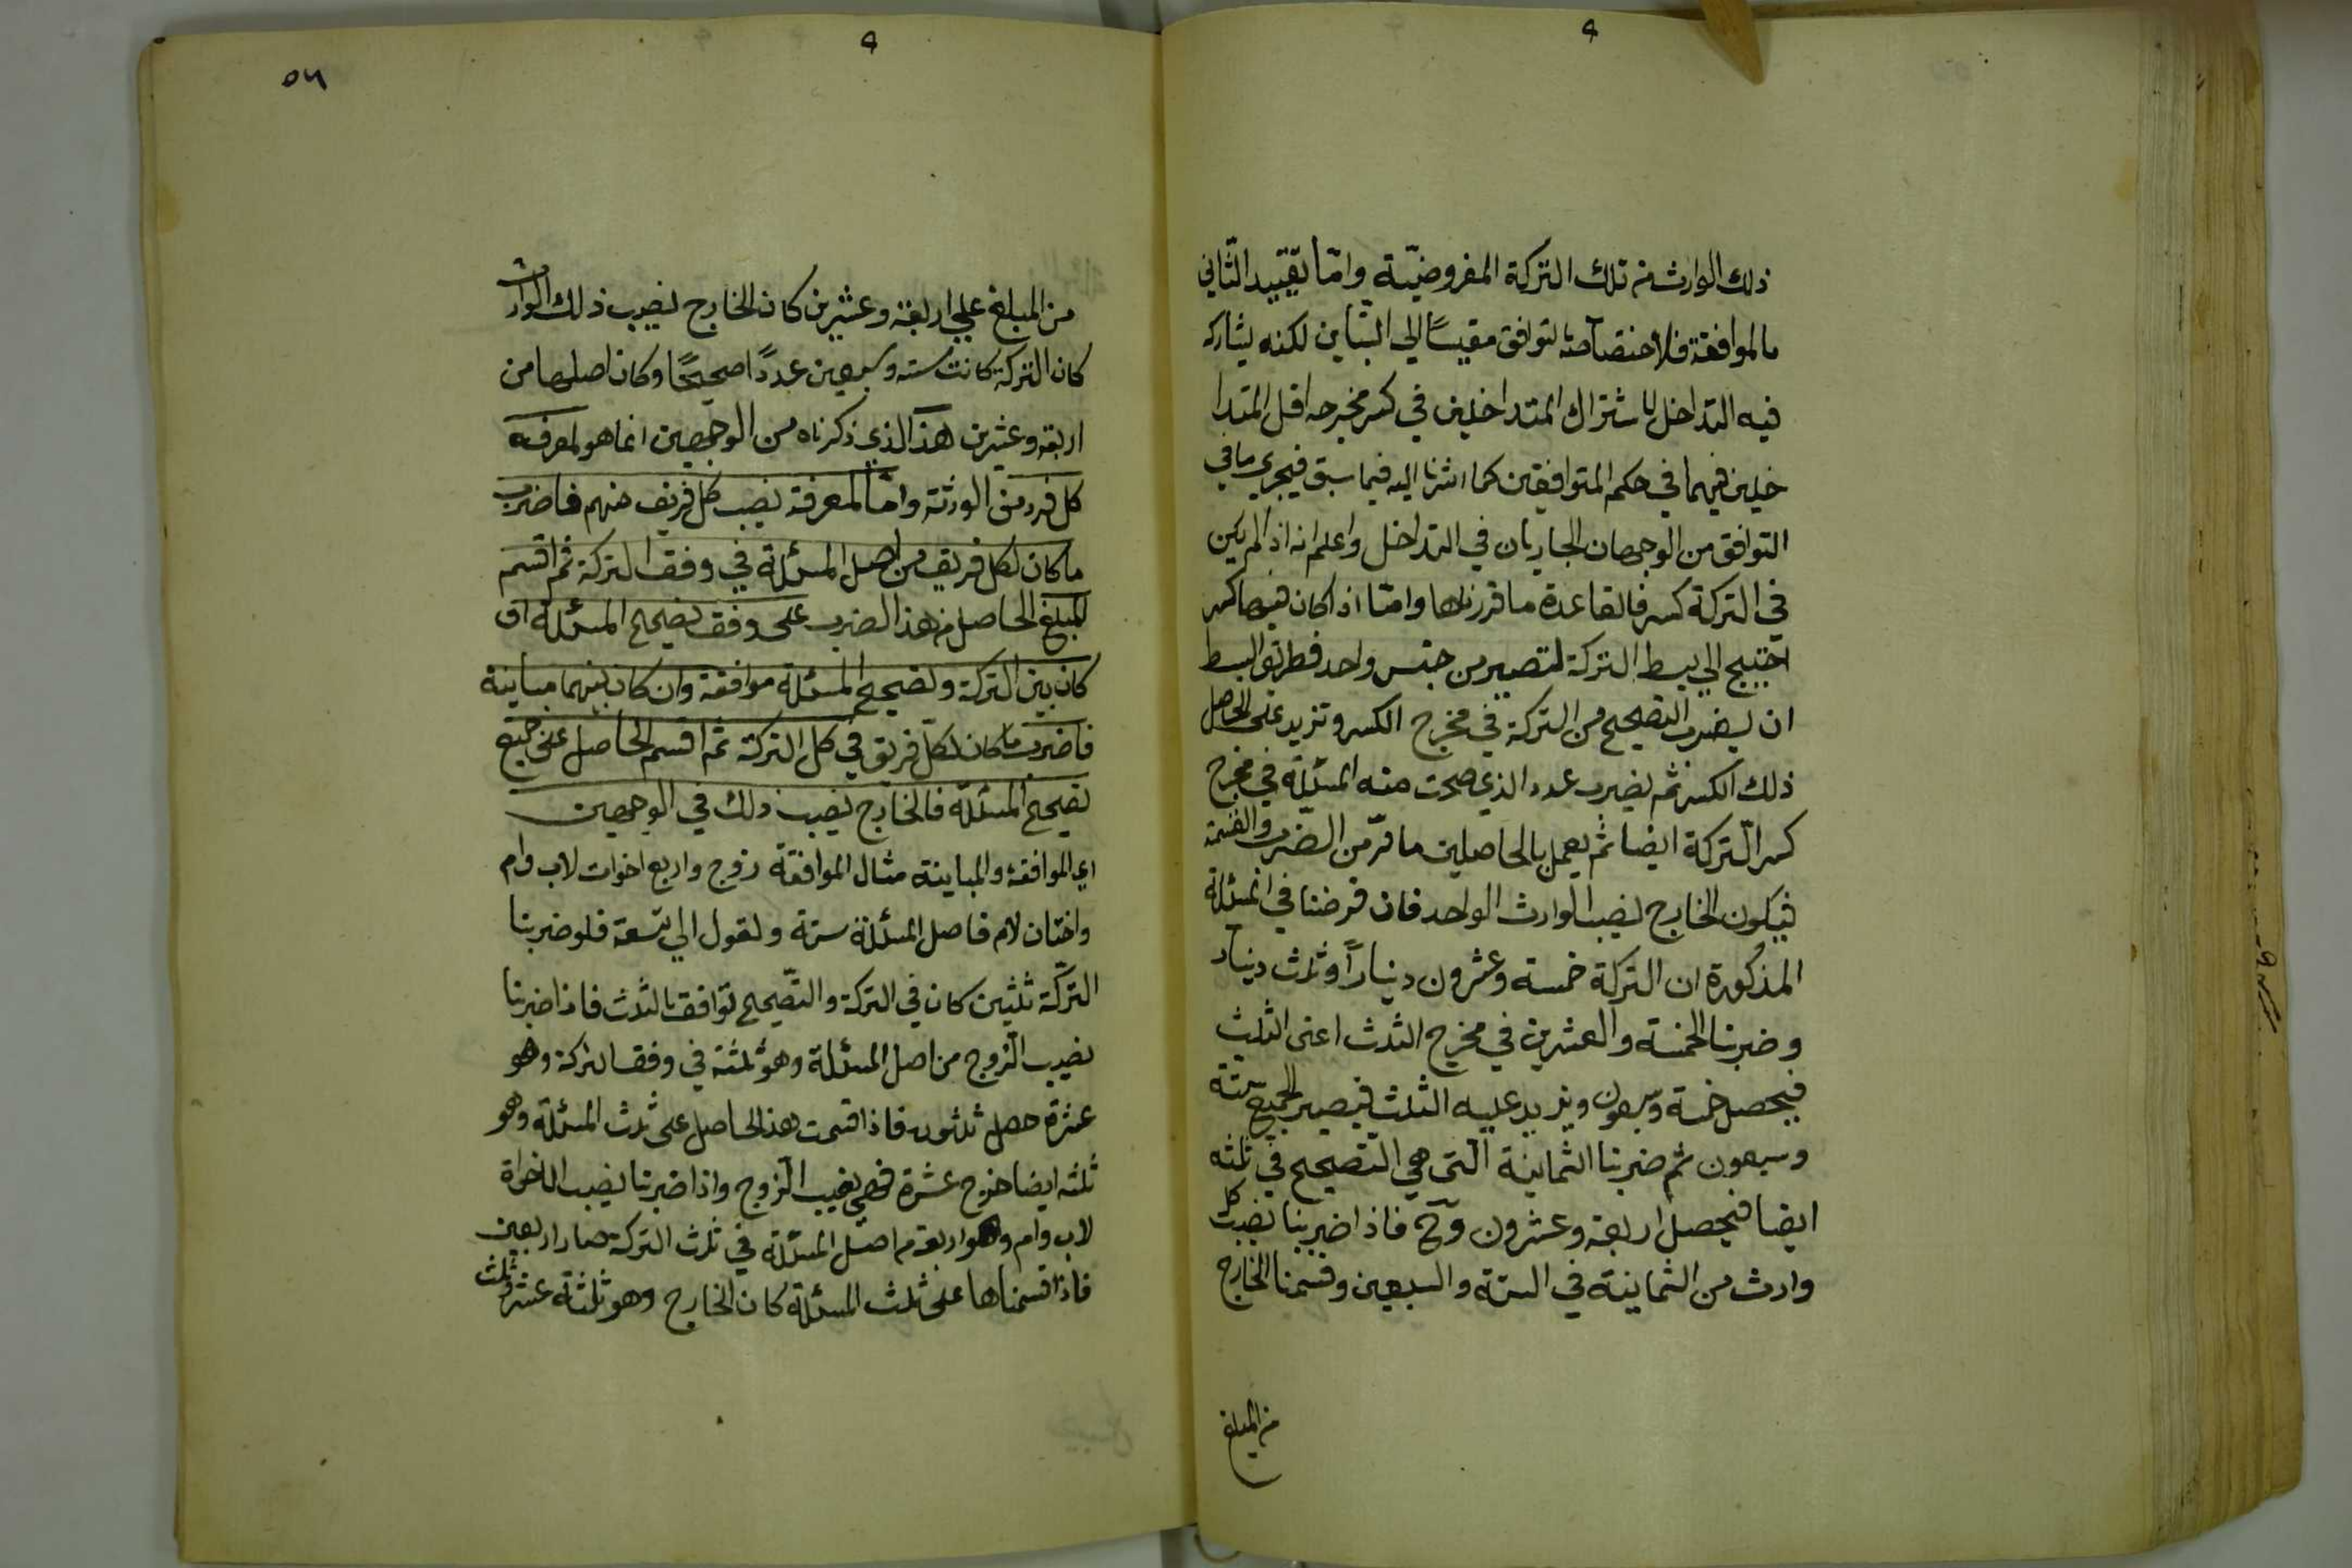 ذلك الوارث من تلك التركة المفروضيّة وامّا تقييد الثّاني
بالموافقة فلاختصاصه لتوافق مقيسًا الي التباين لكنه يشاركه
فيه التداخل لاشتراك المتداخلين في كسر مخرجه اقل المتدا
خلين فيهما في حكم المتوافقين كما اشرنا اليه فيما سبق فيجري ما في
التوافق من الوجهان الجاريان في التداخل واعلم انه اذا لم يكن
في التركة كسر فالقاعدة ما قررناها وامّا اذا كان فيها كسر
احتيج الي بسط التركة لتصير من جنس واحد فطريق البسط
ان يضرب التصحيح من التركة في مخرج الكسر وتزيد على الحاصل
ذلك الكسر ثم يضرب عدد الذي صحت منه المسئلة في مخرج
كسر التّركة ايضا ثم يعمل بالحاصلين ما مرّ من الضّرب والقسمة
فيكون الخارج نصيب الوارث الواحد فان فرضنا في المسئلة
المذكورة ان التركة خمسة وعشرون دينارًا وثلث دينار
وضربنا الخمسة والعشرين في مخرج الثلث اعنى الثلث
فيحصل خمسة وسبعون ويزيد عليه الثلث فيصير الجميع ستة
وسبعون ثم ضربنا الثمانية الّتى هي التّصحيح في ثلثه
ايضا فيحصل اربعة وعشرون وح فاذا ضربنا نصيب كل
وارث من الثمانية في الستة والسبعين وقسمنا الخارج
من المبلغ
٥٦
من المبلغ علي اربعة وعشرين كان الخارج نصيب ذلك الوارث
كان التركة كانت ستة وسبعين عددًا صحيحًا وكان اصلها من
اربعة وعشرين هذا الذي ذكرناه من الوجهين انما هو لمعرفة
كل فرد من الورثة وامّا لمعرفة نصيب كل فريق منهم فاضرب
ما كان لكل فريق من اصل المسئلة في وفق التركة ثم اقسم
المبلغ الحاصل من هذا الضرب على وفق تصحيح المسئلة ان
كان بين التركة وتصحيح المسئلة موافقة وان كان بينهما مباينة
فاضرب ما كان لكل فريق في كل التركة ثم اقسم الحاصل على جميع
تصحيح المسئلة فالخارج نصيب ذلك في الوجهين
اي الموافقة والمباينة مثال الموافقة زوج واربع اخوات لاب وام
واختان لام فاصل المسئلة ستة ولعول الي تسعة فلو ضربنا
التركة ثلثين كان في التركة والتّصحيح توافق بالثلث فاذا ضربنا
نصيب الزوج من اصل المسئلة وهو ثلثة في وفق التركة وهو
عشرة حصل ثلثون فاذا قسمت هذا الحاصل على ثلث المسئلة وهو
ثلثه ايضا خرج عشرة فهي نصيب الزوج واذا ضربنا نصيب الاخواة
لاب وام وهو اربعة من اصل المسئلة في ثلث التركة صار اربعين
فاذا قسمناها على ثلث المسئلة كان الخارج وهو ثلثة عشر وثلث